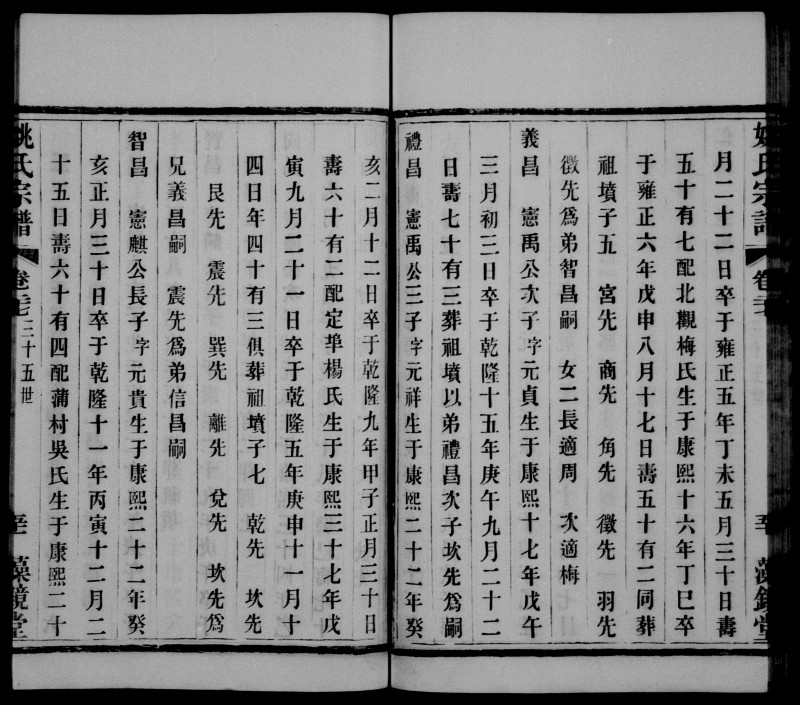 姚氏宗譜 卷 藻鏡堂
月二十二日卒于雍正五年丁未五月三十日壽
五十有七配北觀梅氏生于康熙十六年丁巳卒
于雍正六年戊申八月十七日壽五十有二同葬
祖墳子五 宮先 商先 角先 徵先 羽先
徵先爲弟智昌嗣 女二長適周 次適梅
義昌 憲禹公次子字元貞生于康熙十七年戊午
三月初三日卒于乾隆十五年庚午九月二十二
日壽七十有三葬祖墳以弟禮昌次子坎先爲嗣
禮昌 憲禹公三子字元祥生于康熙二十二年癸
亥二月十二日卒于乾隆九年甲子正月三十日
壽六十有二配定埠楊氏生于康熙三十七年戊
寅九月二十一日卒于乾隆五年庚申十一月十
四日年四十有三俱葬祖墳子七 乾先 坎先
艮先 震先 巽先 離先 兌先 坎先爲
兄義昌嗣 震先爲弟信昌嗣
智昌 憲麒公長子字元貴生于康熙二十二年癸
亥正月三十日卒于乾隆十一年丙寅十二月二
十五日壽六十有四配蒲村吳氏生于康熙二十
姚氏宗譜 卷 三十五世 藻鏡堂